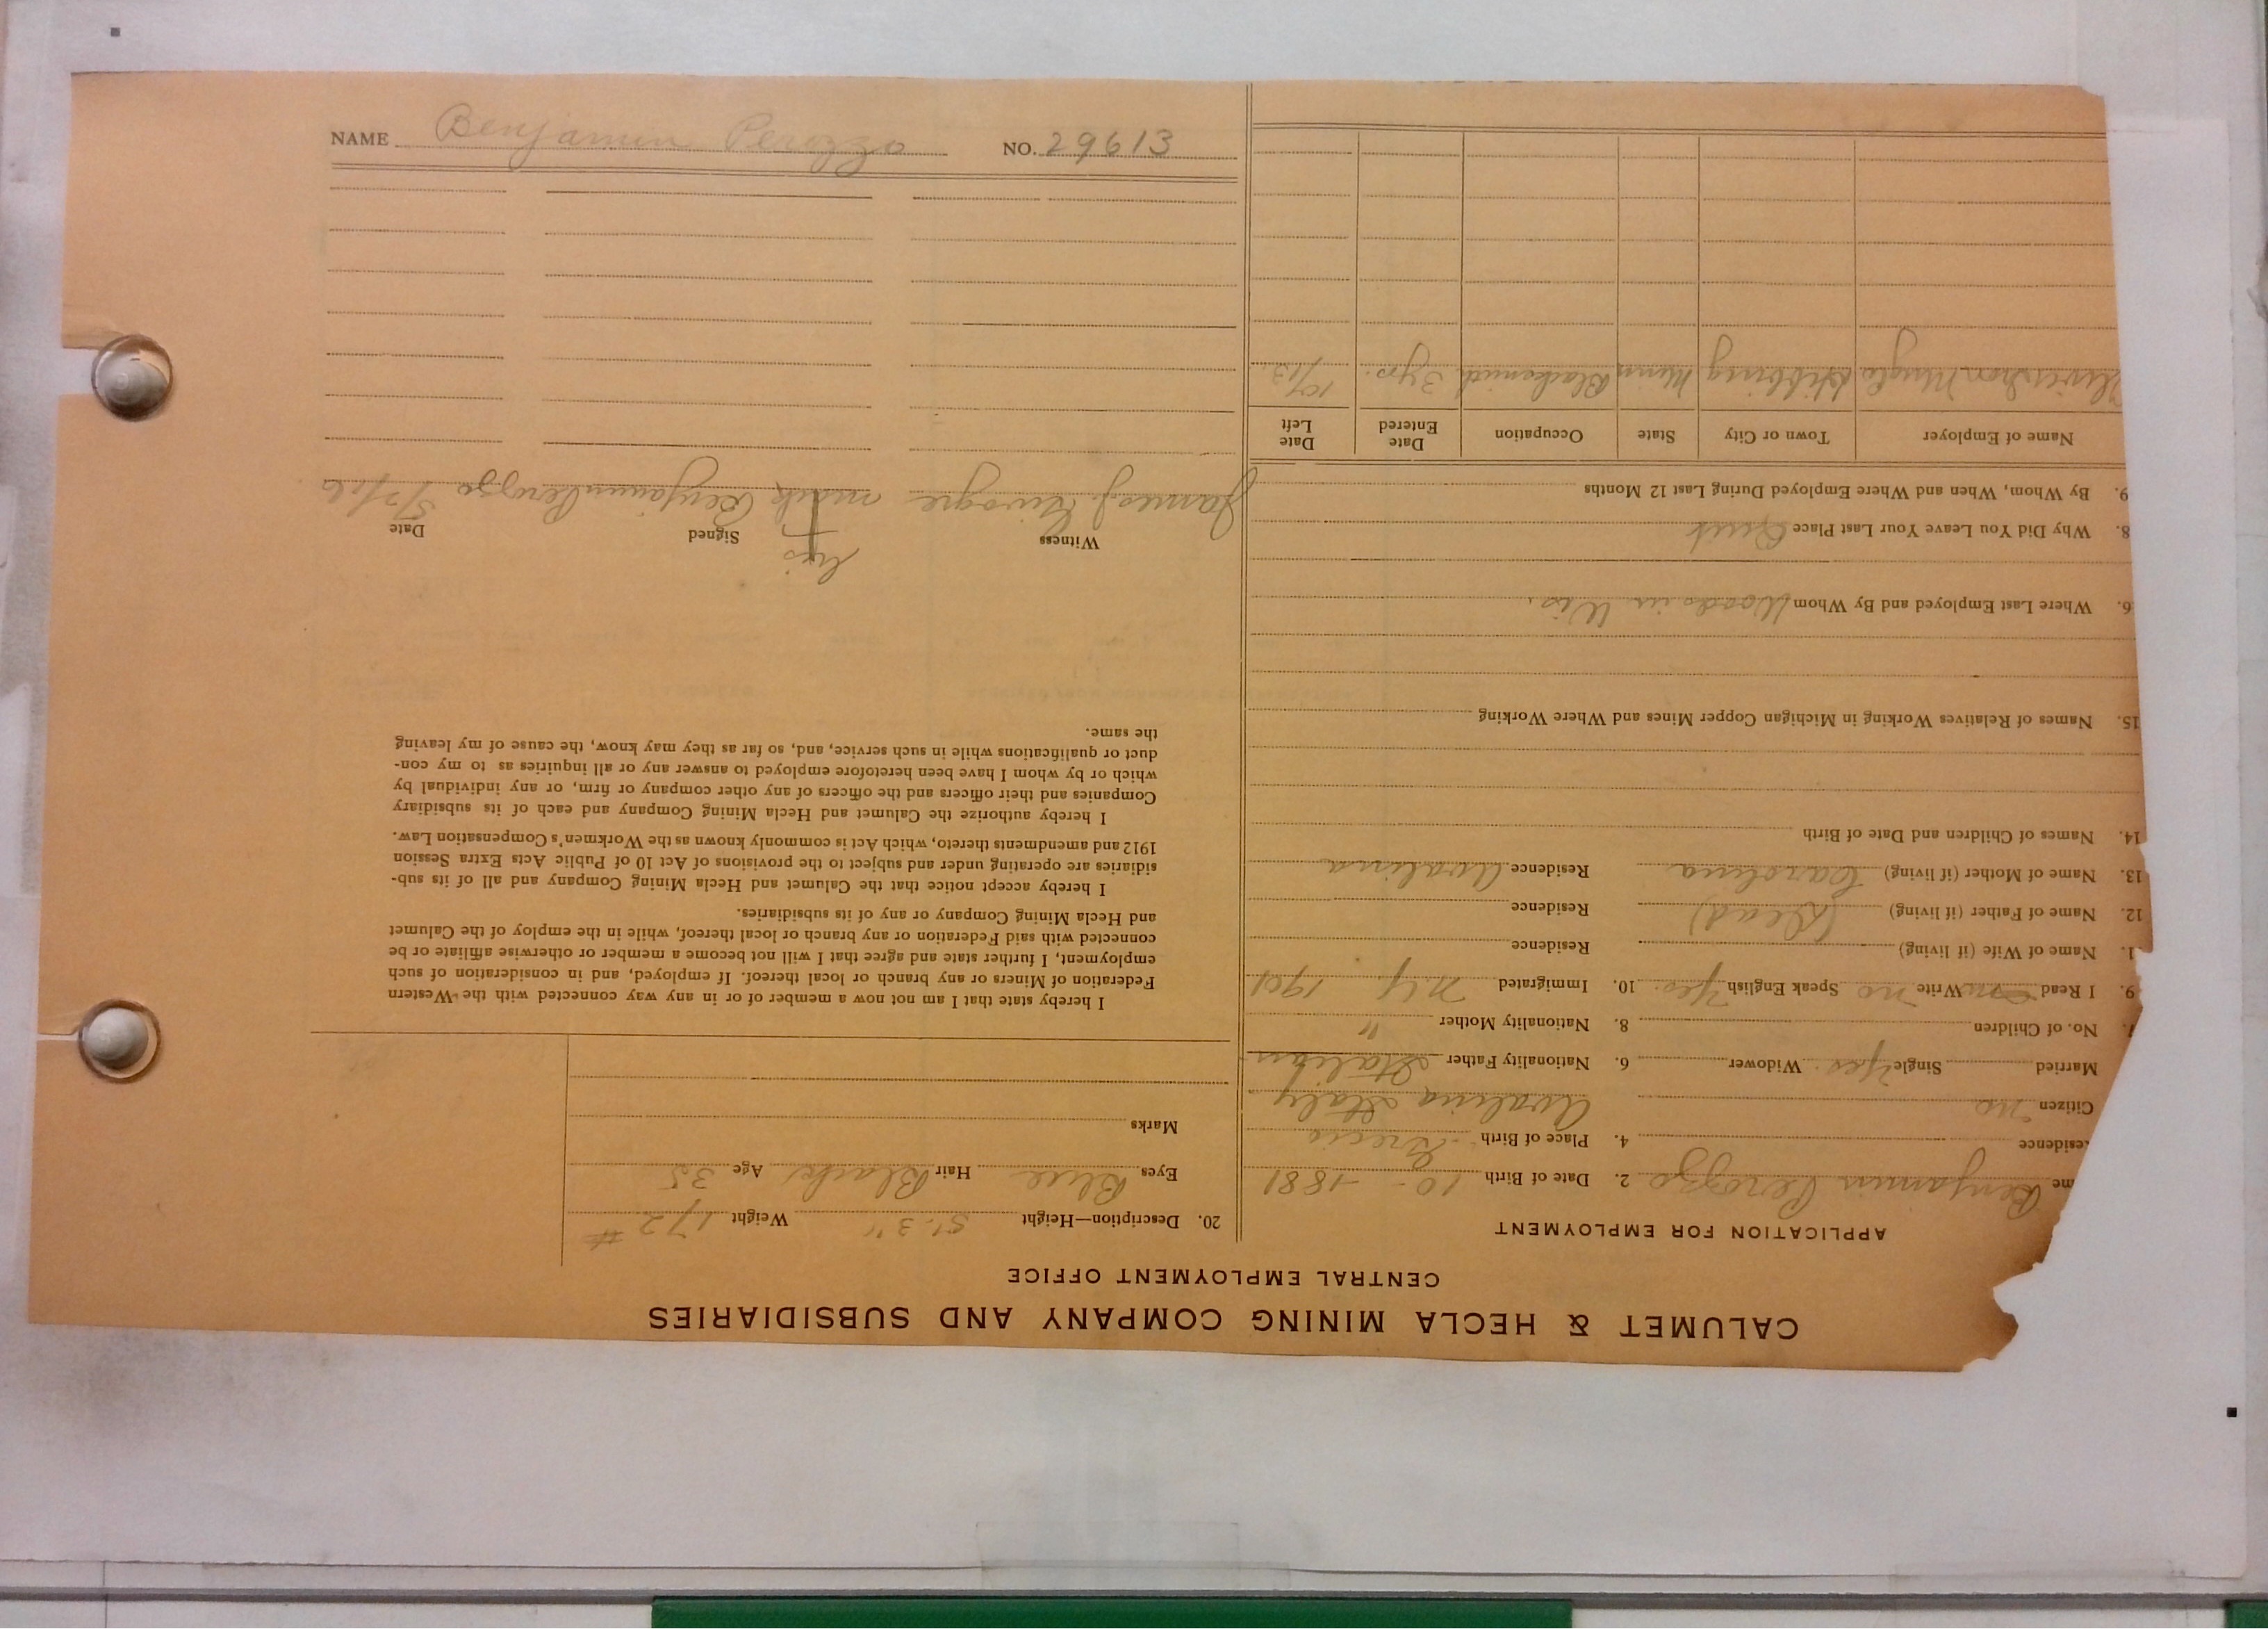 NAME Benjamin Perozzo NO. 29613
CALUMET & HECLA MINING COMPANY AND SUBSIDIARIES
CENTRAL EMPLOYMENT OFFICE
APPLICATION FOR EMPLOYMENT
me Benjamin Perozzo 2. Date of Birth 10 - 1881
esidence 4. Place of Birth
Citizen no Avalina Italy
Married Single Yes. Widower 6. Nationality Father Italian
7. No. of Children 8. Nationality Mother "
9. I Read Write no Speak English Yes. 10. Immigrated N.Y. 1901
1. Name of Wife (if living) Residence
12. Name of Father (if living) (Dead) Residence
13. Name of Mother (if living) Carolina Residence Avalina
14. Names of Children and Date of Birth
15. Names of Relatives Working in Michigan Copper Mines and Where Working
6. Where Last Employed and By Whom Woods in Wis.
8. Why Did You Leave Your Last Place Quit
9. By Whom, When and Where Employed During Last 12 Months
Name of Employer Town or City State Occupation Date Entered Date Left
Oliver Iron Hibbing Minn Blacksmith 3 yrs. 10/13
20. Description—Height 5'.3" Weight 172 #
Eyes Blue Hair Black Age 35
Marks
I hereby state that I am not now a member of or in any way connected with the Western
Federation of Miners or any branch or local thereof. If employed, and in consideration of such
employment, I further state and agree that I will not become a member or otherwise affiliate or be
connected with said Federation or any branch or local thereof, while in the employ of the Calumet
and Hecla Mining Company or any of its subsidiaries.
I hereby accept notice that the Calumet and Hecla Mining Company and all of its sub-
sidiaries are operating under and subject to the provisions of Act 10 of Public Acts Extra Session
1912 and amendments thereto, which Act is commonly known as the Workmen's Compensation Law.
I hereby authorize the Calumet and Hecla Mining Company and each of its subsidiary
Companies and their officers and the officers of any other company or firm, or any individual by
which or by whom I have been heretofore employed to answer any or all inquiries as to my con-
duct or qualifications while in such service, and, so far as they may know, the cause of my leaving
the same.
his
Witness Signed Date
James J. mark Benjamin Perozzo